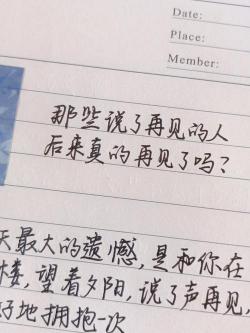 Date:
Place:
Member:
那些说了再见的人
后来真的再见了吗?
天最大的遗憾,是和你在
楼,望着夕阳,说了声再见,
好地拥抱一次